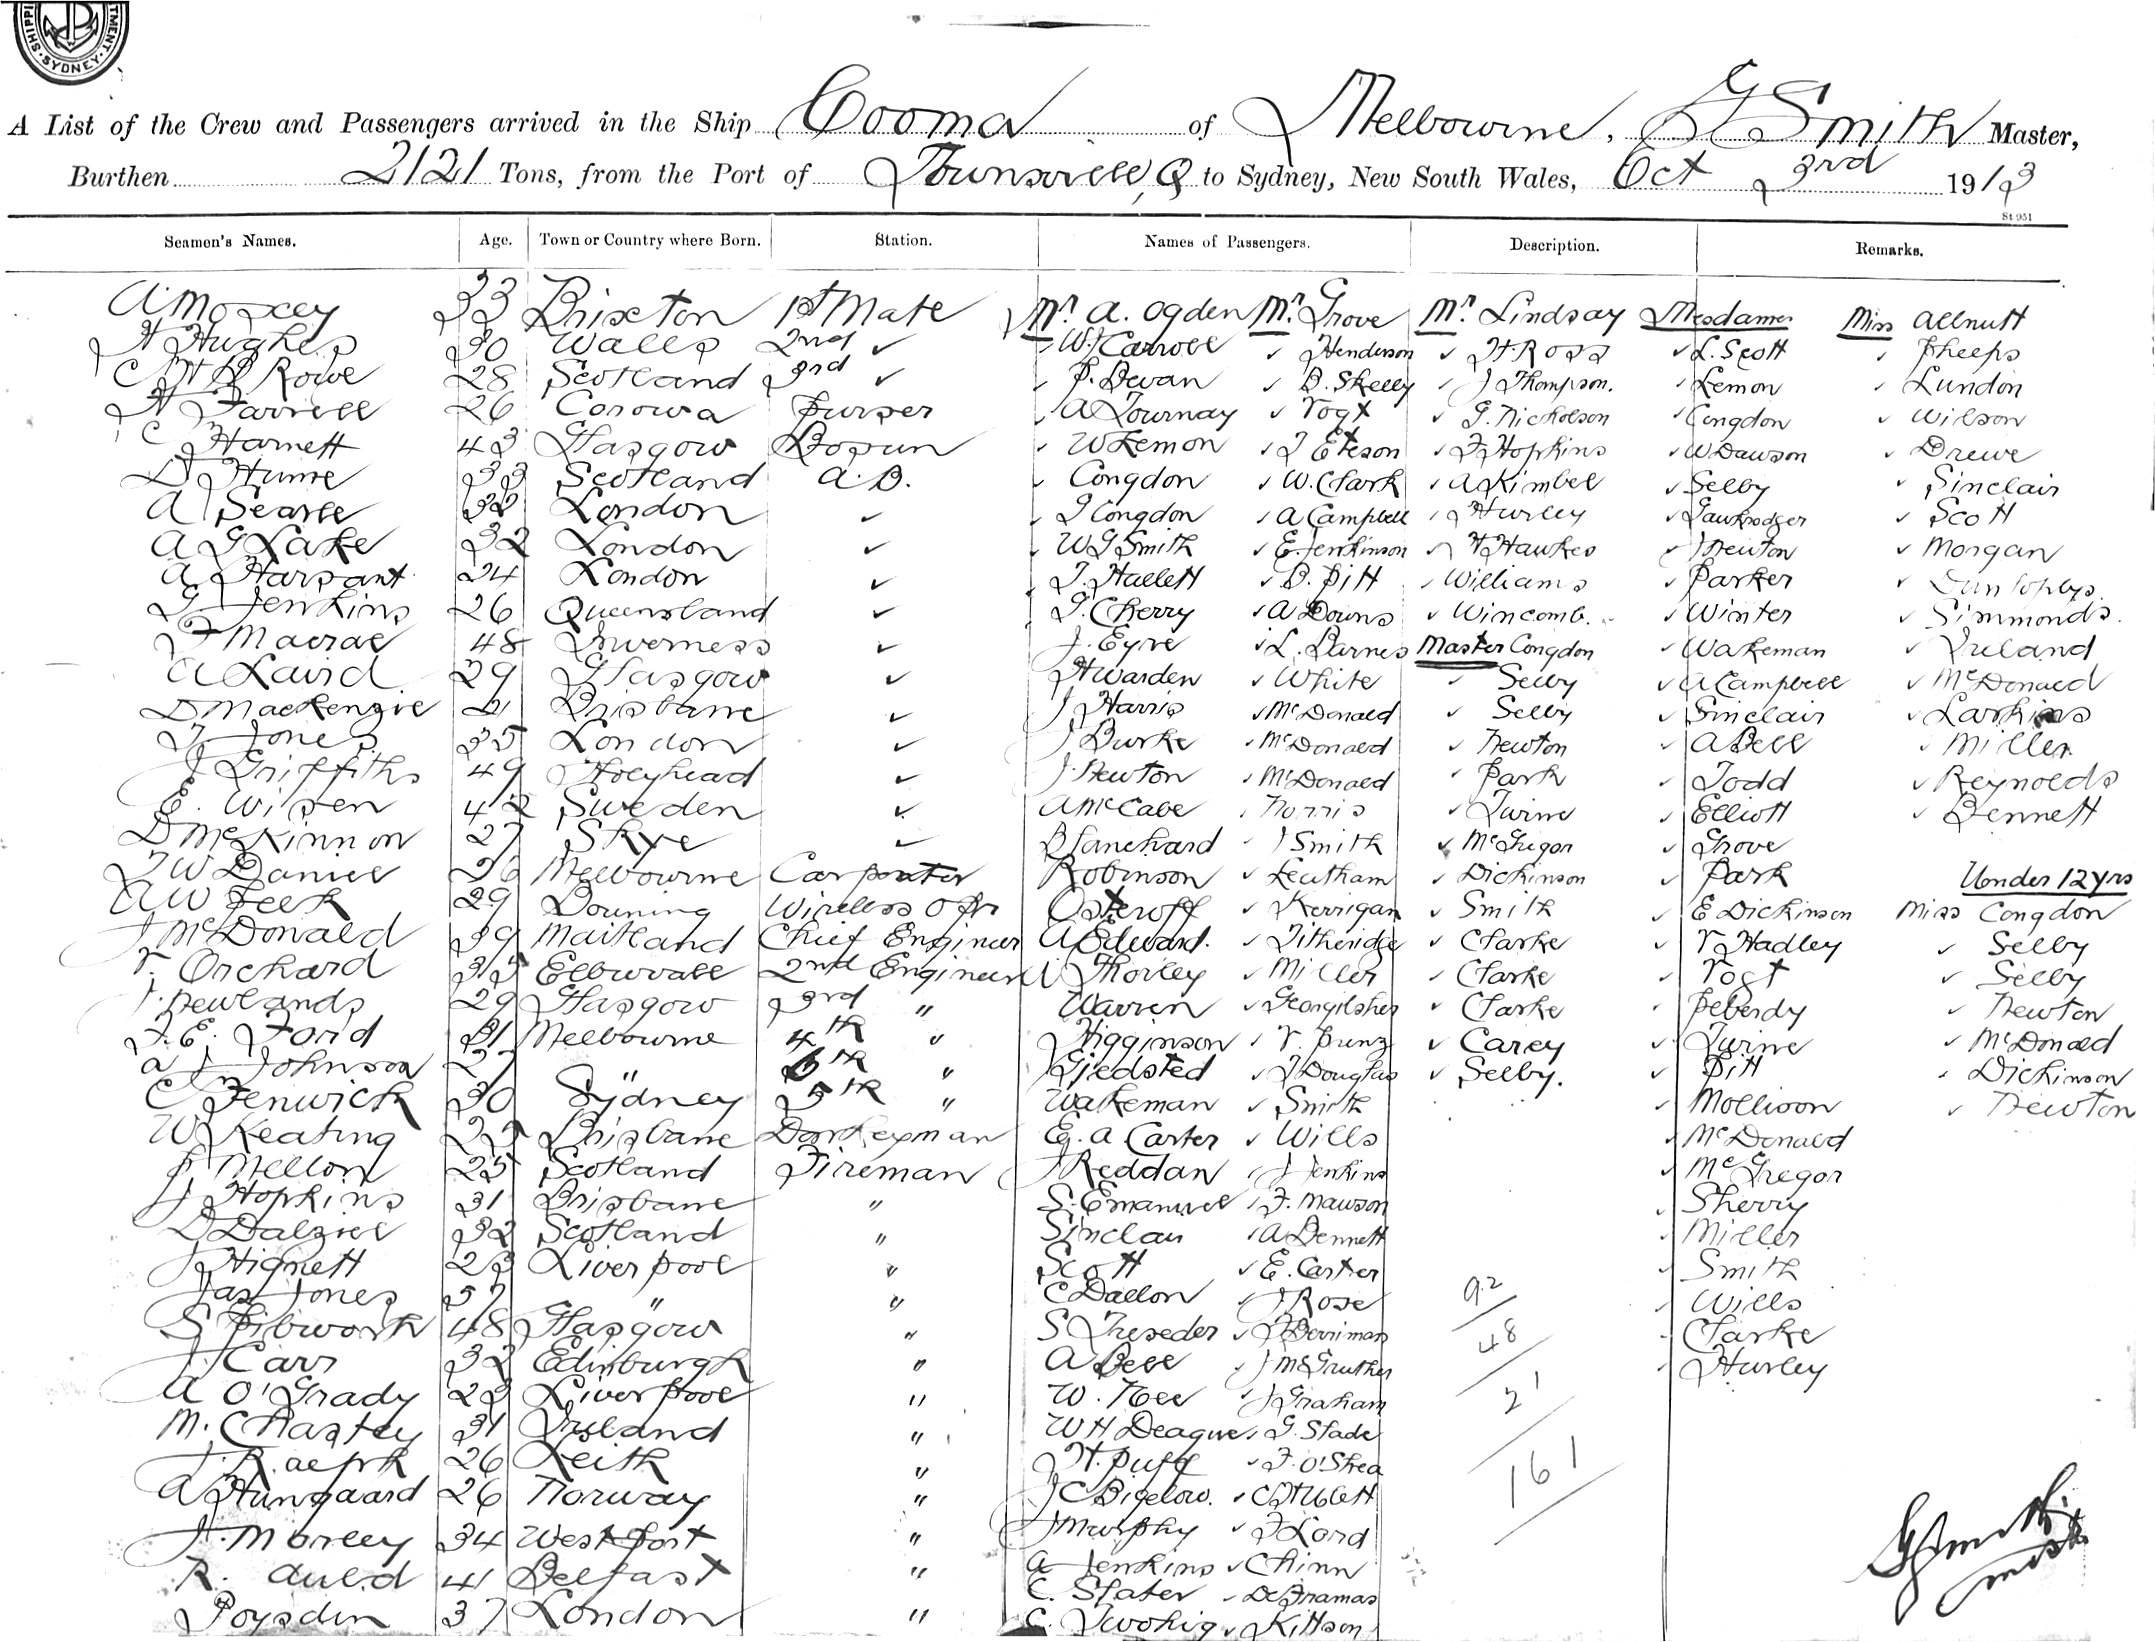 SHIPPI TMENT. SYDNEY.
A List of the Crew and Passengers arrived in the Ship Cooma of Melbourne, G Smith Master,
Burthen 2121 Tons, from the Port of Townsville, Q to Sydney, New South Wales, Oct 3rd 1913
St 951
Seamen's Names. Age. Town or Country where Born. Station. Names of Passengers. Description. Remarks.
33 Brixton 1st Mate Mr A. Ogden Mr Grove Mr Lindsay Mesdames Miss Allnutt
H Hughes 30 Wales 2nd W Carroll Henderson H Ross L. Scott Pheeps
Rowe 28 Scotland 3rd P. Devan D. Skelly J Thompson. Lemon Lundon
H Farrell 26 Corowa Purser A Tournay Vogt G. Nicholson Congdon Wilson
C Harnett 43 Glasgow Bosun W Lemon T Eteson F Hopkins W Dawson Drewe
D Hume 33 Scotland A.B. Congdon W. Clark A Kimbel Selby Sinclair
A Searle 32 London J Congdon A Campbell J Hurley Gawkrodger Scott
A G Lake 32 London W G Smith E. Jenkinson H Hawkes J Newton Morgan
A Harsant 24 London T. Hallett B. Pitt Williams Parker
G Jenkins 26 Queensland T. Cherry A Downs Wincomb. Winter Simmonds.
F Macrae 48 Inverness J. Eyre L. Barnes Master Congdon Wakeman Ireland
A Laird 29 Glasgow H Warden White Selby A Campbell McDonald
D Mackenzie 21 Brisbane J Harris McDonald Selby Sinclair Larkins
T Jones 35 London J Burke McDonald Newton A Bell Miller
J Griffiths 49 Holyhead J. Newton McDonald Park Todd Reynolds
E. Wisen 42 Sweden A McCabe Norris Twine Elliott Bennett
D McKinnon 27 Skye Blanchard J Smith McGregor Grove
T W Daniel 26 Melbourne Carpenter Robinson Leatham Dickinson Park Under 12 yrs
A W Feek 29 Wireless Opr Osteroff Kerrigan Smith E Dickinson Miss Congdon
J McDonald 39 Maitland Chief Engineer A Edward. Titheridge Clarke V Hadley Selby
V. Orchard 35 Ebbwvale 2nd Engineer Thorley Miller Clarke Vogt Selby
J. Newlands 29 Glasgow 3rd " Warren Clarke Peberdy Newton
F. E. Ford 31 Melbourne 4th " Higginson V. Punz Carey Twine McDonald
A J Johnson 27 " 6th " Gjedsted J Douglas Selby. Pitt Dickinson
C Fenwick 30 Sydney 5th " Wakeman Smith Mollison Newton
W Keating 33 Brisbane Donkeyman E. A Carter Wills McDonald
P Mellon 25 Scotland Fireman J Reddan J Jenkins McGregor
J Hopkins 31 Brisbane " S. Emanuel F. Mawson Sherry
D Dalziel 32 Scotland " Sinclair A Bennett Miller
J Hignett 23 Liverpool " Scott E. Carter Smith
Jas Jones 37 " " C Dallon J Rose 92 Wills
S Pibworth 48 Glasgow " S Treseder J Berriman 48 Clarke
J. Carr 32 Edinburgh " A Bell J McGruther Hurley
A O'Grady 23 Liverpool " W. Nee J Graham 21
M. Chastey 31 Ireland " W H Deague G. Slade
26 Leith " H. Puff F. O'Shea 161
A Hungaard 26 Norway " J C Bigelow. C H Ublett
J. Morley 34 Westport " J Murphy F Lord
R. Auld 41 Belfast " A Jenkins Chinn
Poysden 37 London " C. Slater
C. Twohig Kittson
G Smith